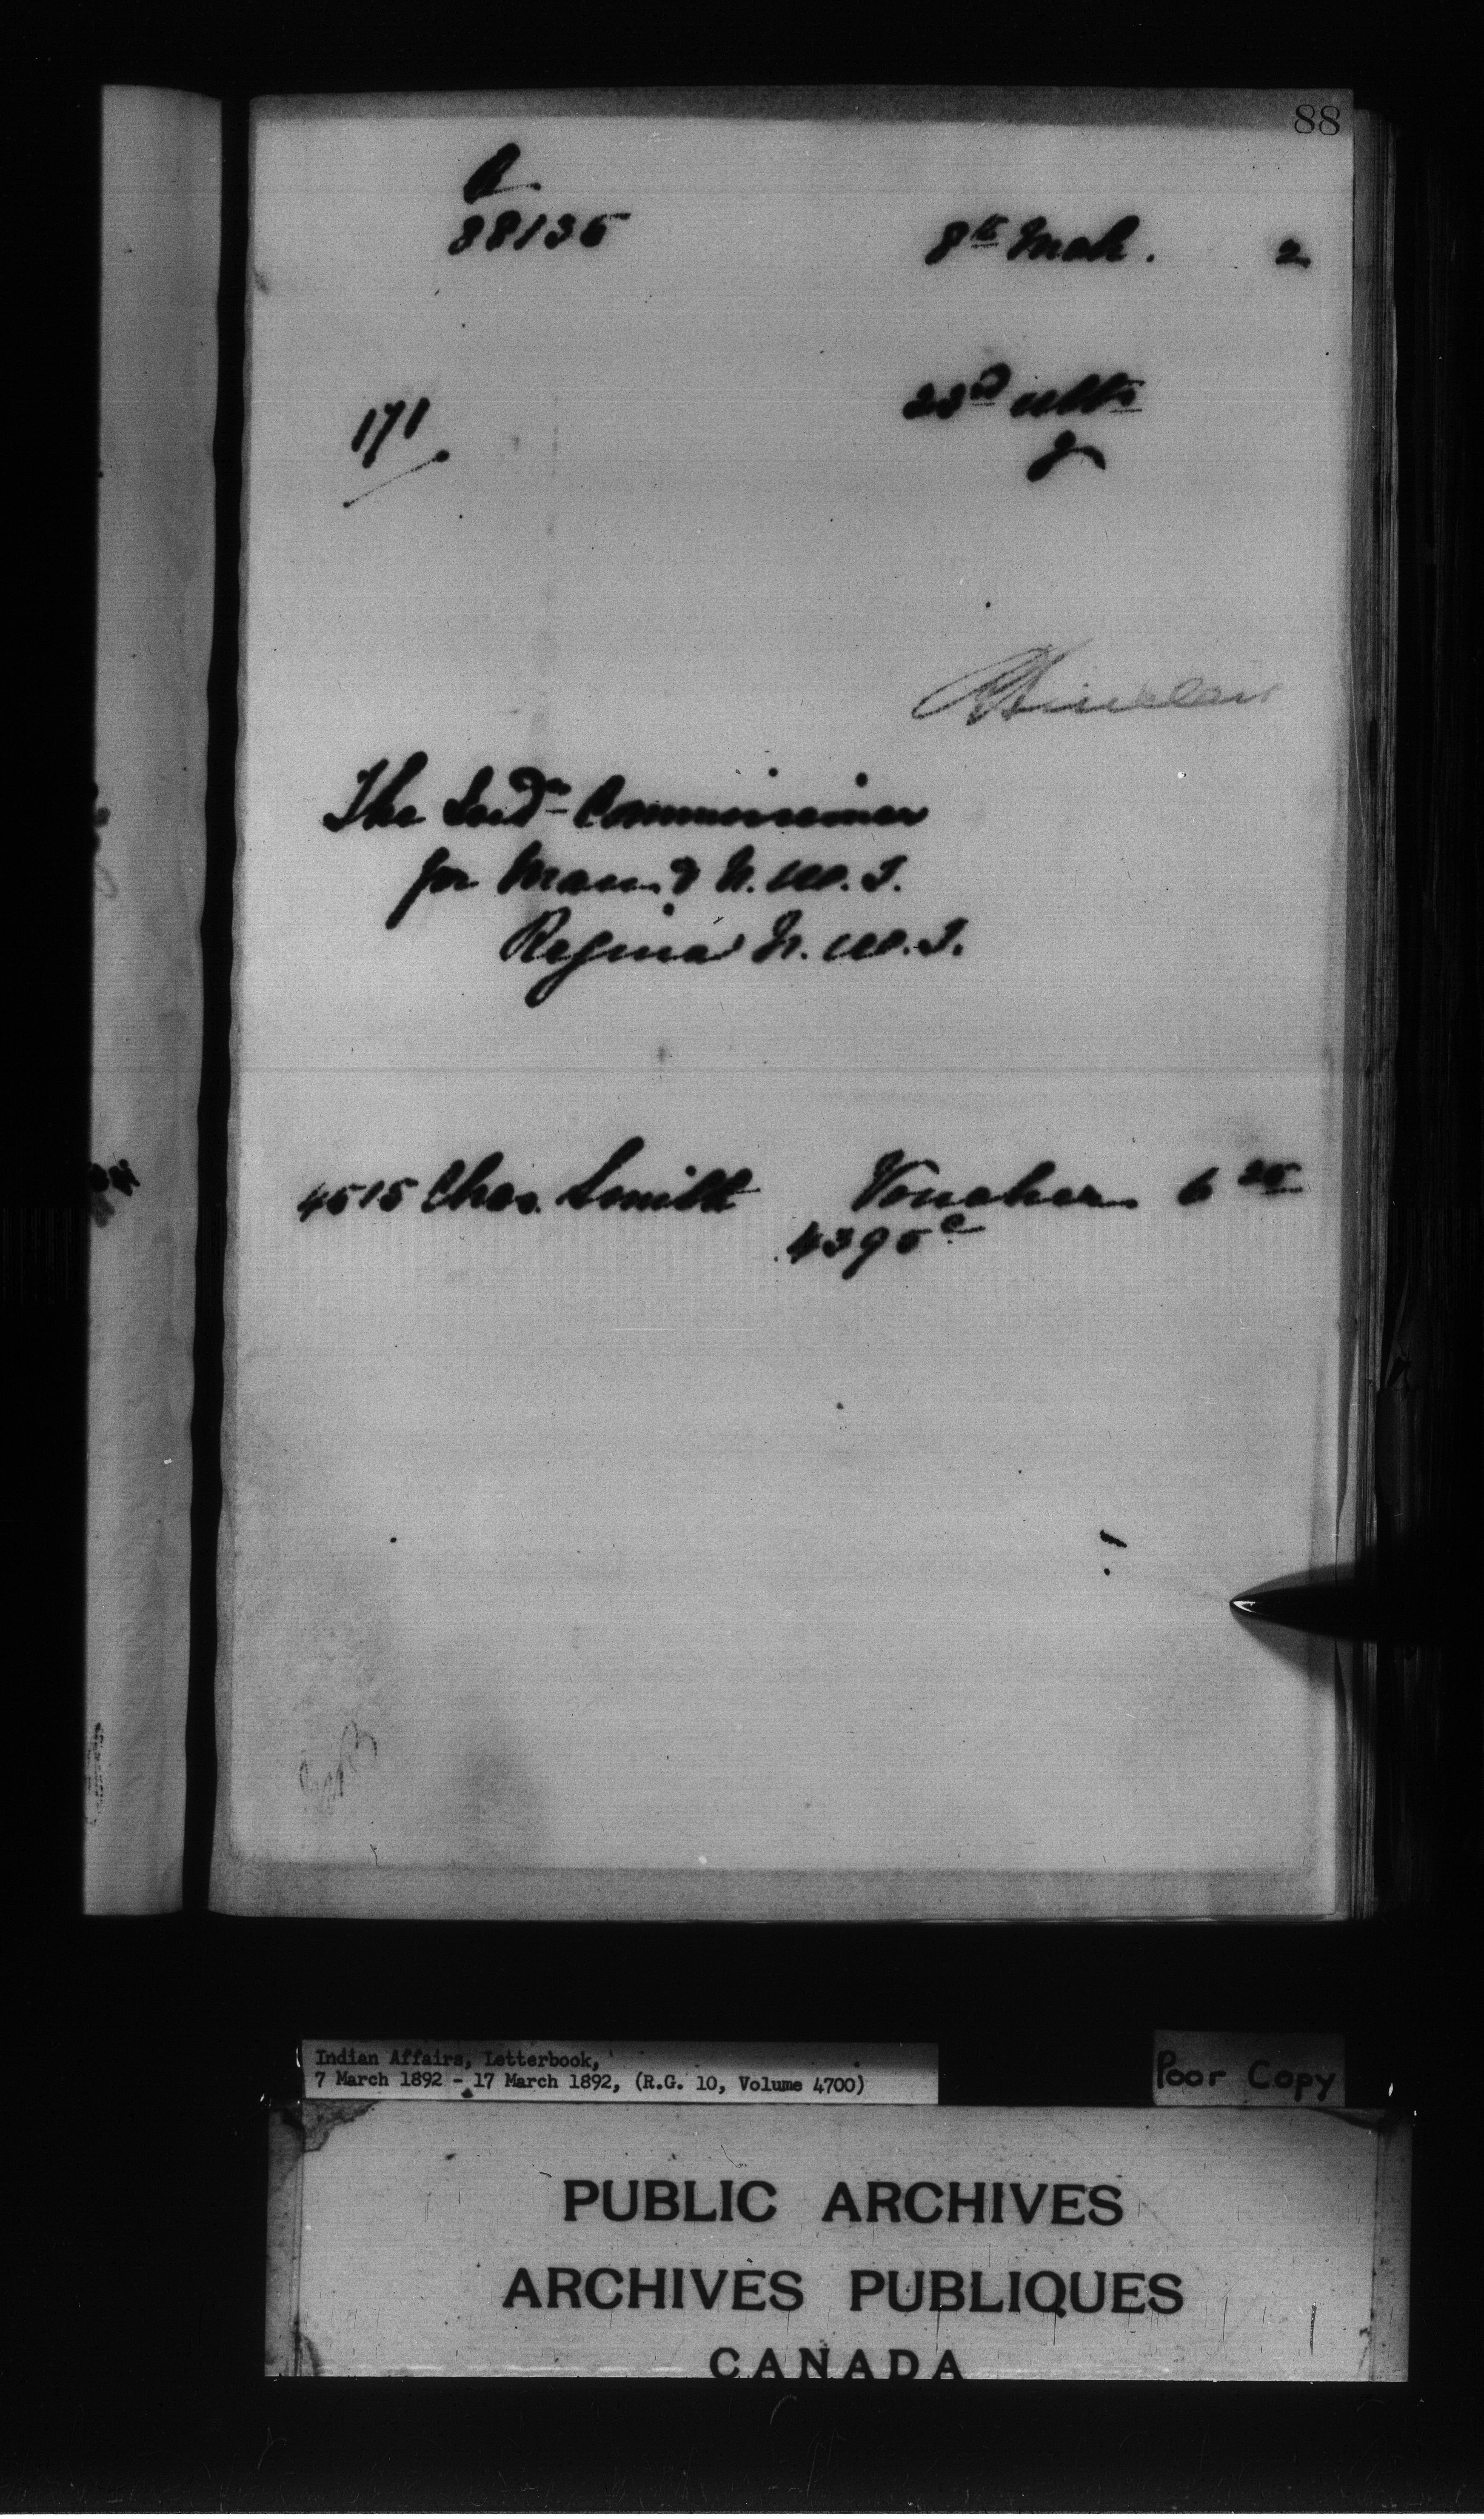 88
88135
8th Mch. 2
171
23d ulto
RSinclair
The Indn Commissioner
for Man. & N.W.T.
Regina N.W.T.
4515 Chas. Smith Voucher 6 25
4395c
Indian Affairs, Letterbook,
7 March 1892 - 17 March 1892, (R.G. 10, Volume 4700)
Poor Copy
PUBLIC ARCHIVES
ARCHIVES PUBLIQUES
CANADA